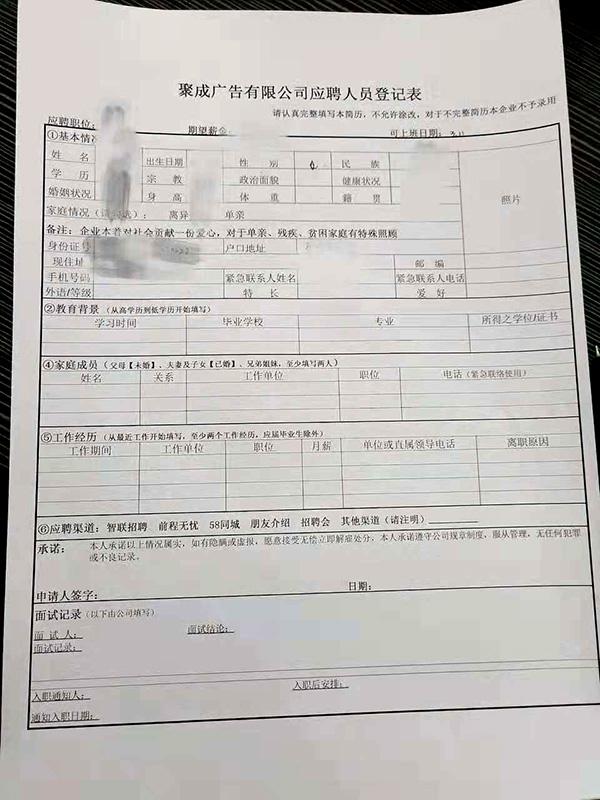 聚成广告有限公司应聘人员登记表
请认真完整填写本简历，不允许涂改，对于不完整简历本企业不予录用
应聘职位： 期望薪金 可上班日期：
①基本情况
姓 名 出生日期 性 别 民 族
学 历 宗 教 政治面貌 健康状况 照片
婚姻状况 身 高 体 重 籍 贯
家庭情况 ）： 离异 单亲
备注：企业本着对社会贡献一份爱心，对于单亲、残疾、贫困家庭有特殊照顾
身份证号 户口地址
现住址 邮 编
手机号码 紧急联系人姓名 紧急联系人电话
外语/等级 特 长 爱 好
②教育背景（从高学历到低学历开始填写）
学习时间 毕业学校 专业 所得之学位/证书
④家庭成员（父母【未婚】、夫妻及子女【已婚】、兄弟姐妹，至少填写两人）
姓名 关系 工作单位 职位 电话（紧急联络使用）
⑤工作经历（从最近工作开始填写，至少两个工作经历，应届毕业生除外）
工作期间 工作单位 职位 月薪 单位或直属领导电话 离职原因
⑥应聘渠道：智联招聘 前程无忧 58同城 朋友介绍 招聘会 其他渠道（请注明）
承诺： 本人承诺以上情况属实，如有隐瞒或虚报，愿意接受无偿立即解雇处分，本人承诺遵守公司规章制度，服从管理，无任何犯罪
或不良记录。
申请人签字： 日期：
面试记录（以下由公司填写）
面 试 人： 面试结论：
面试记录：
入职通知人： 入职后安排：
通知入职日期：